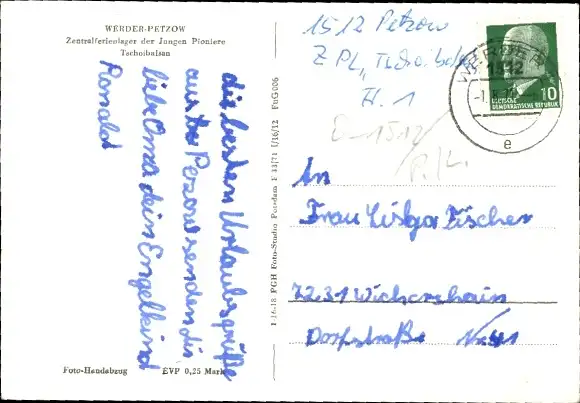 WERDER-PETZOW
Zentralferienlager der Jungen Pioniere
Tschoibalsan
die besten Urlaubsgrüße
aus Petzow senden dir
liebe Oma dein Engelkind
Ronald
Foto-Handabzug EVP 0,25 Mark
I-16-18 PGH Foto-Studio Potsdam F 43/71 I/16/12 FuG 006
1512 Petzow
Z PL, Tschoibalsan
H. 1
1512
WERDER
1512
e
10
DEUTSCHE
DEMOKRATISCHE REPUBLIK
An
Frau Lisga Fischer
7231 Wickershain
Dorfstraße Nr. 41